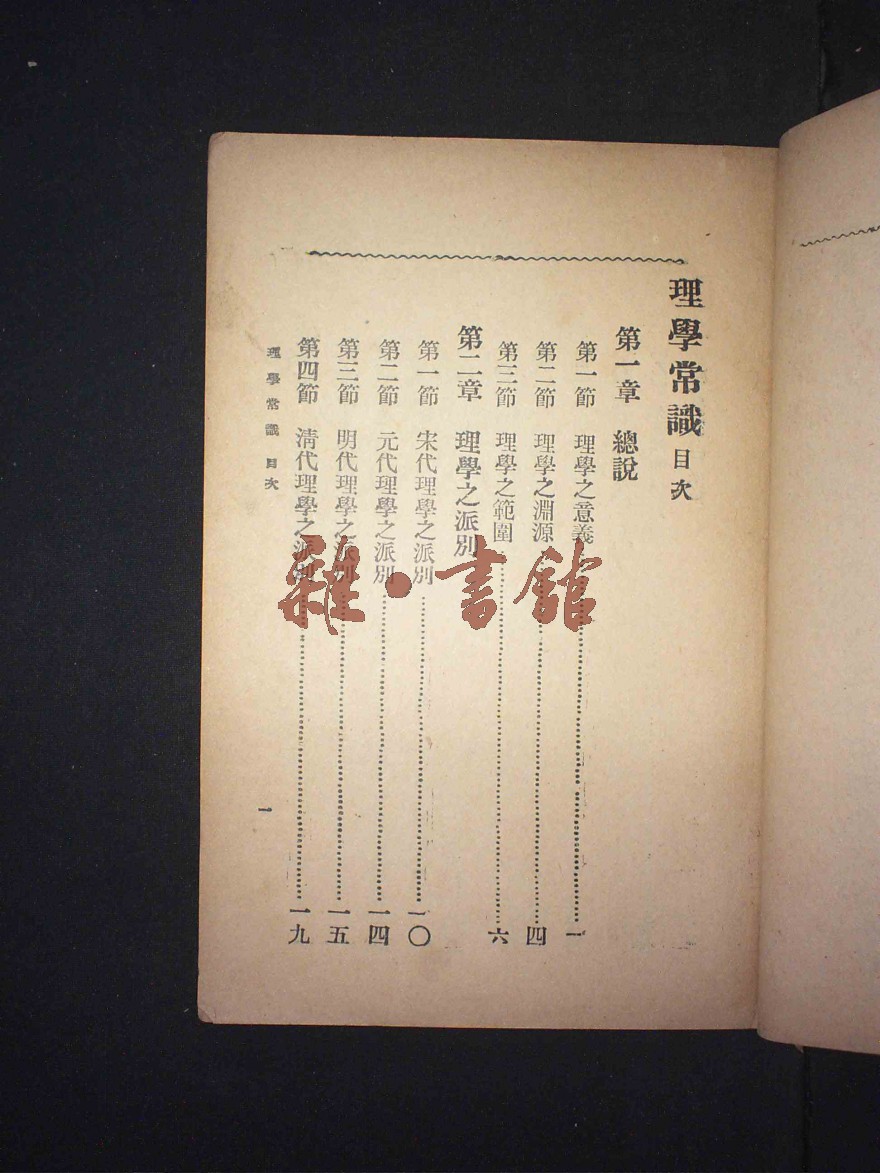 理學常識 目次
第一章 總說
第一節 理學之意義 一
第二節 理學之淵源 四
第三節 理學之範圍 六
第二章 理學之派別
第一節 宋代理學之派別 一〇
第二節 元代理學之派別 一四
第三節 明代理學之派別 一五
第四節 清代理學之派別 一九
理學常識 目次 一
雜·書館